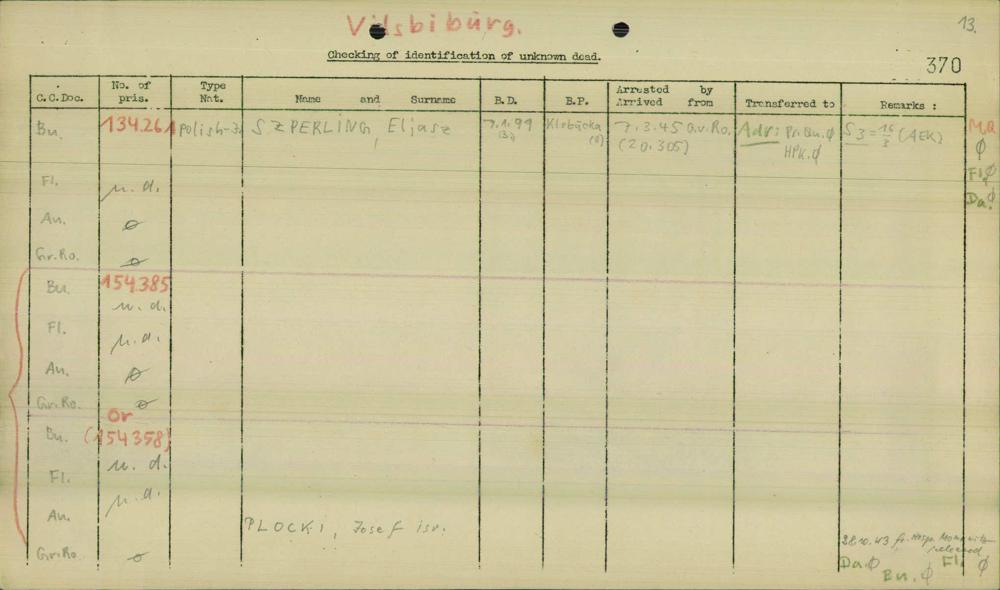 Vilsbibürg.
13.
Checking of identification of unknown dead.
370
C.C.Doc. No. of pris. Type Nat. Name and Surname B.D. B.P. Arrested by Arrived from Transferred to Remarks :
Bu. 134.261 polish- SZPERLING, Eljasz 7.1.99 Klobucka 7.3.45 G.v.Ro. Adr: Pr.Bu. ø S3 = 16/3 (AEK) Ma
(20.305) HPK. ø ø
Fl. n. d. Fl. ø
Da. ø
An. ø
Gr.Ro. ø
Bu. 154.385
n. d.
Fl. n. d.
An. ø
Gr.Ro. ø
or
Bu. (154358)
n. d.
Fl. n. d.
An. PLOCKI, Josef isr.
28.10.43 fr. Hosp. Monowitz
released
Gr.Ro. ø Da. ø Bu. ø Fl. ø